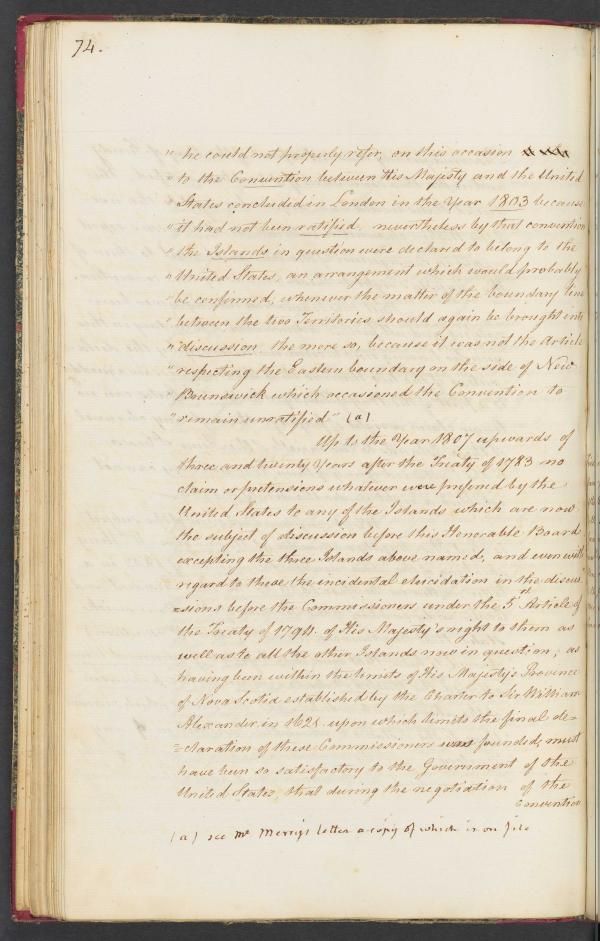 74.
" he could not properly refer, on this occasion
" to the Convention between His Majesty and the United
" States concluded in London in the Year 1803 because
" it had not been ratified, nevertheless by that convention
" the Islands in question were declared to belong to the
" United States, an arrangement which would probably
" be confirmed, whenever the matter of the boundary line
" between the two Territories should again be brought into
" discussion, the more so, because it was not the Article
" respecting the Eastern boundary on the side of New
" Brunswick which occasioned the Convention to
" remain unratified" (a)
Up to the Year 1807 upwards of
three and twenty Years after the Treaty of 1783 no
claim or pretensions whatever were prefered by the
United States to any of the Islands which are now
the subject of discussion before this Honorable Board
excepting the three Islands above named, and even with
regard to these the incidental elucidation in the discus
=sions before the Commissioners under the 5th Article of
the Treaty of 1794. of His Majesty's right to them as
well as to all the other Islands now in question, as
having been within the limits of His Majesty's Province
of Nova Scotia established by the Charter to Sir William
Alexander in 1621 upon which limits the final de-
=claration of these Commissioners was founded, must
have been so satisfactory to the Government of the
United States, that during the negotiation of the
Convention
(a) see Mr Merry's letter a copy of which is on file